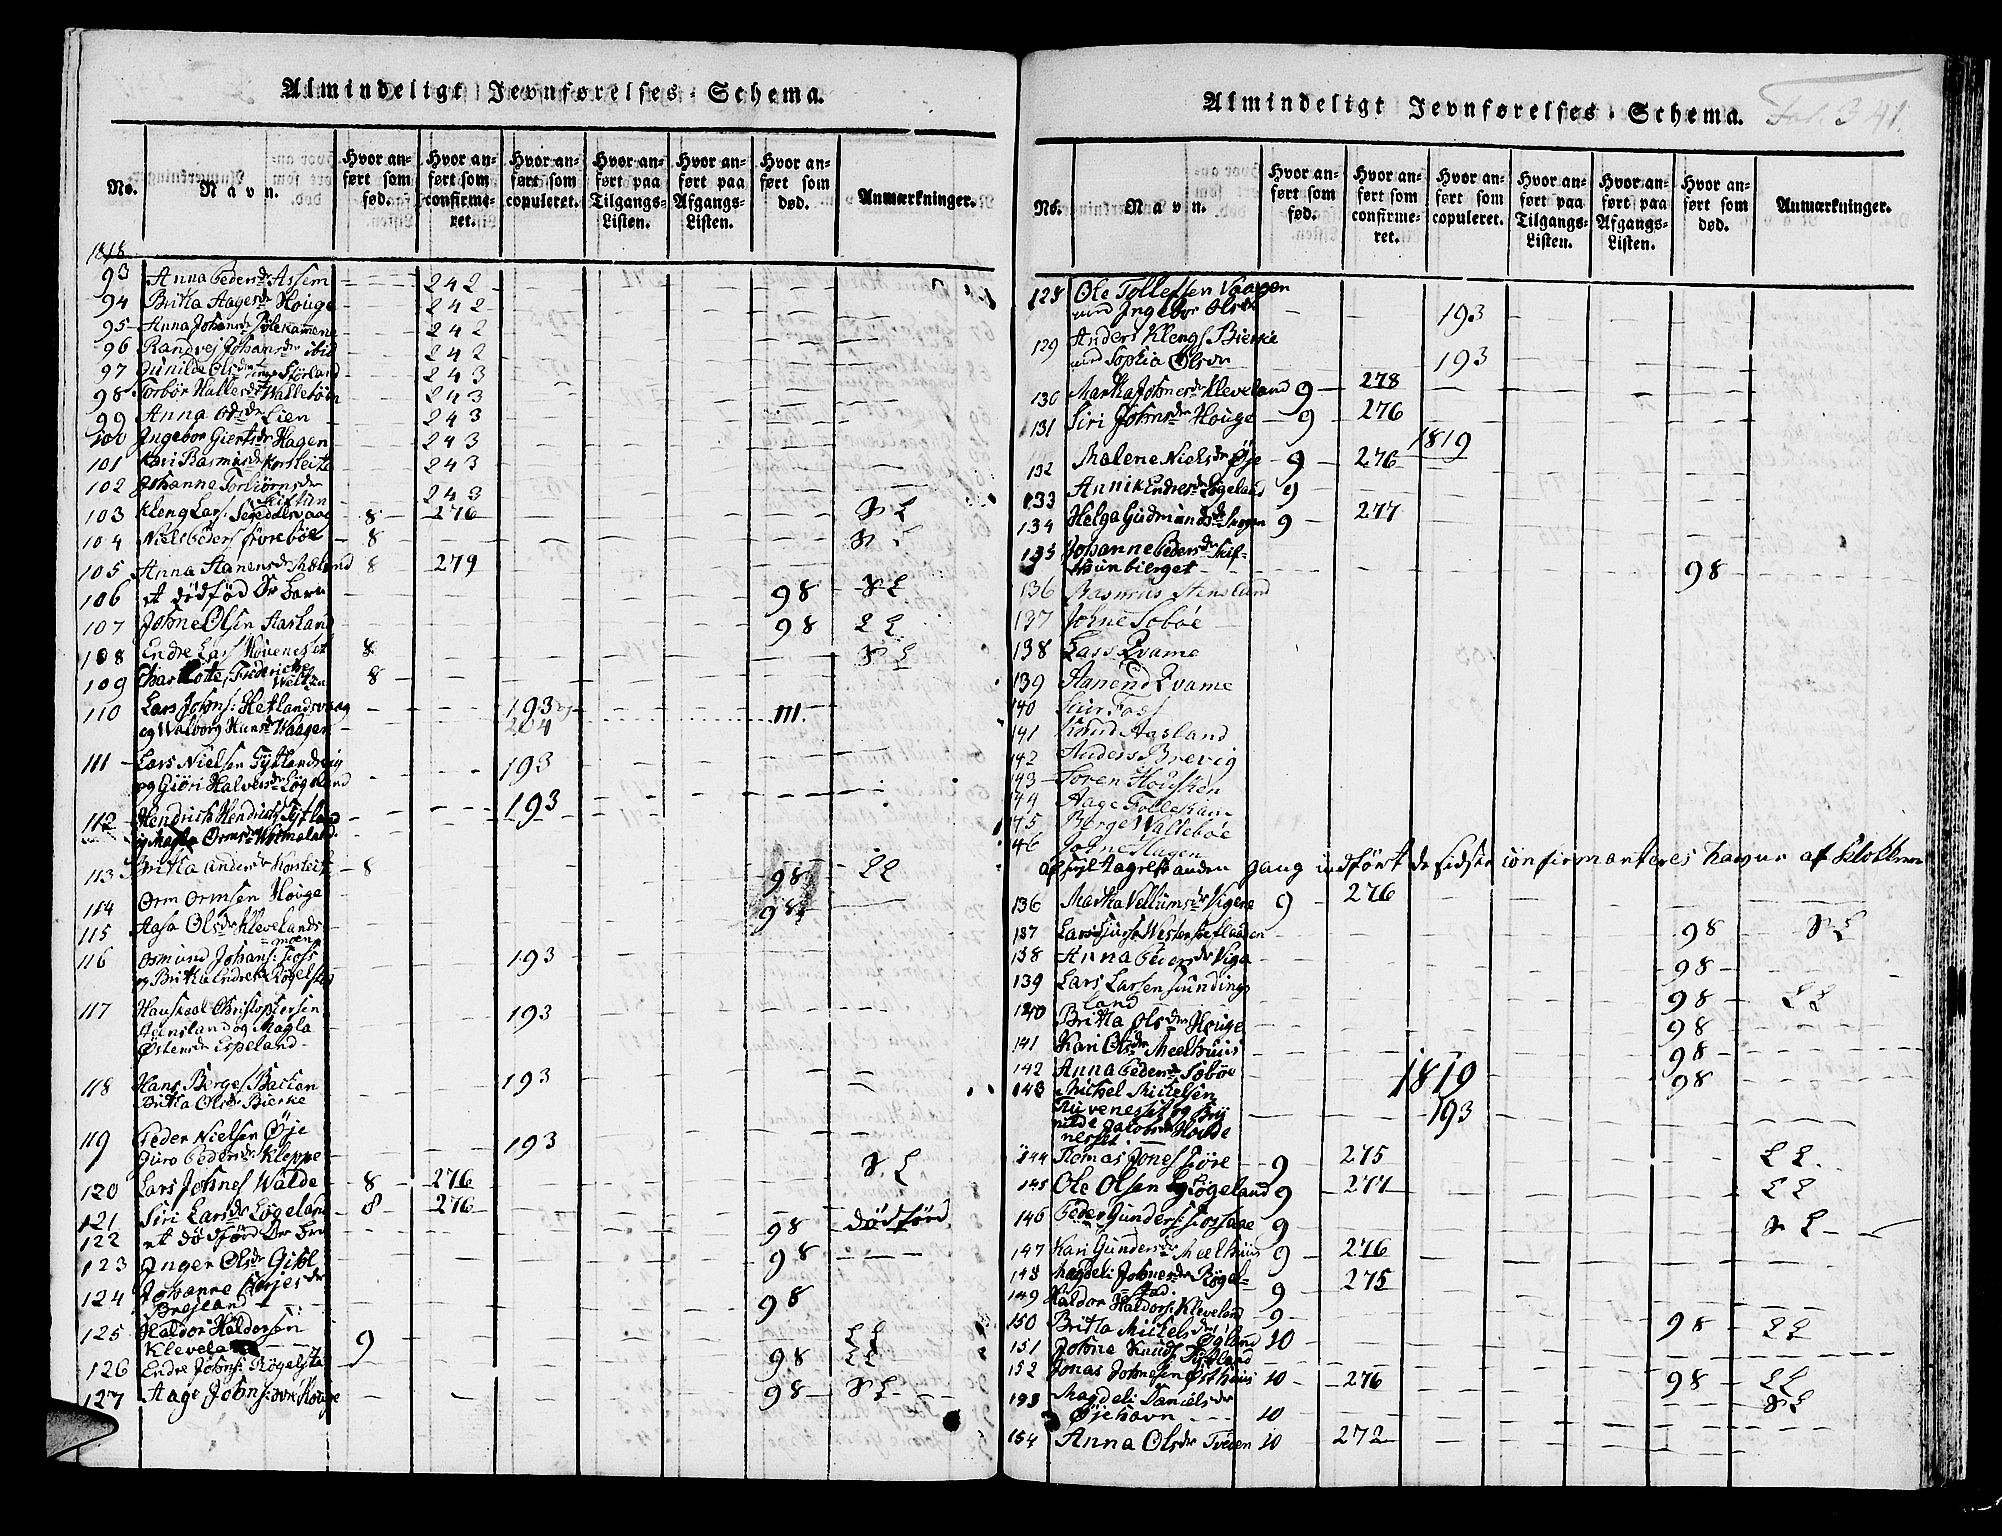 Almindeligt Jevnførelses-Schema.
No. Navn. Hvor anført som fød. Hvor anført som confirmeret. Hvor anført som copuleret. Hvor anført paa Tilgangs-Listen. Hvor anført paa Afgangs-Listen. Hvor anført som død. Anmærkninger.
1818
93 Anna Pedersdr Assem 242
94 Britha Aagesdr Houge 242
95 Anna Johansdr 242
96 Randvej Johansdr ibid 242
97 Gunilde Olsdr 243
98 Torbør Hallesdr Wallebøen 243
99 Anna Olsdr Lien 243
100 Ingebor Giertsdr Hagen 243
101 Kari Rasmusdr Korsleite 243
102 Johanne Torbiørnsdr
Skiftun 243
103 Kleng Lars: 8 276 S L
104 Niels Peders Førebøe 8 S L
105 Anna Stanensdr Mæland 8 279
106 et dødfød Dr Barn 98 S L
107 Johne Olsen Aarland 98 L L
108 Endre Lars Hovenesset 8 S L
109 Charlote, Frederiche
Weltzin 8
110 Lars Johns: Hetlandsvaag 193
og Walborg Knuds Waagen 204 111.
111 Lars Nielsen Tytlandsvig
og Giøri Halversdr Løgeland 193
112 Hendrich Hendrichs Tytland 193
og Magla Ormsdr Wormeland.
113 Britha Andersdr Korsleit 8 98 L L
114 Orm Ormsen Houge 98
115 Aasa Olsdr Klevelands
moen
116 Osmund Johans: Foss 193
og Britha Endresdr Røgelstad
117 Houskool Christophersen 193
Steinsland og Magla
Østensdr Espeland
118 Hans Berges Backen 193
Britha Olsdr Bierke
119 Peder Nielsen Øje 193
Guro Pedersdr Kleppe
120 Lars Johnes Walde 8 276 S. L
121 Siri Larsdr Løgeland 8 276
122 et dødfødt Dr Barn 98 dødfødd
123 Inger Olsdr Gibl 98
124 Johanne
Brejland 98
125 Haldor Haldorsen
Kleveland 9 L L
126 Endre Johns: Røgelstad 98 L L
127 Aage Johns: Houge 98 S L
Almindeligt Jevnførelses-Schema. Fol. 341.
No. Navn. Hvor anført som fød. Hvor anført som confirmeret. Hvor anført som copuleret. Hvor anført paa Tilgangs-Listen. Hvor anført paa Afgangs-Listen. Hvor anført som død. Anmærkninger.
128 Ole Tollefsen Vaagen
und Ingebor Olsdr 193
129 Anders Klengs Bierke
und Sophia Olsdr 193
130 Martha Johnesdr Kleveland 9 278
131 Siri Johnsdr Houge 9 276
1819
132 Malene Nielsdr Øje 9 276
133 Annik Endresdr Løgeland 9
134 Helga Gudmundsdr 9 277
135 Johanne Pedersdr Skif-
tunbierget 98
136 Rasmus Stensland
137 Johne Søbøe
138 Lars Qvame
139 Stanend Qvame
140 Siur Foss
141 Knud Aasland
142 Anders Brevig
143 Søren Housken
144 Aage Follekam
145 Berge Wallebøe
146 Johne Hagen
af anden gang indført de sidste confirmanteres havne af Klokkeren
136 Martha Vellumsdr Vigene 9 276
137 Lars Siurs 98 S L
138 Anna Pedersdr Viga 98
139 Lars Larsen Sundings
land 98 L L
140 Britha Olsdr Houge 98
141 Kari Olsdr Meelhuus 98
142 Anna Pedersdr Søbøe 98
1819
143 Michel Mickelsen
Knivenesset og Bry
nilde Jacobsdr Hovde
nesset. 193
144 Tomas Jones Giøre 9 275 L L.
145 Ole Olsen Løgeland 9 277 L L
146 Peder Gunders: Fossaae 9 S L
147 Kari Gundersdr Meelhuus 9 276
148 Magdeli Johnesdr Røgel-
stad. 9 275
149 Haldor Haldors: Kleveland 9
150 Britha Mickelsdr
Øgland 10 98 L L
151 Johne Knuds Tytland
152 Jonas Johnesen Østhuus 10 276 98 L L
153 Magdeli Danielsdr
Øjehavn 10 S L
154 Anna Olsdr Tveden 10 272